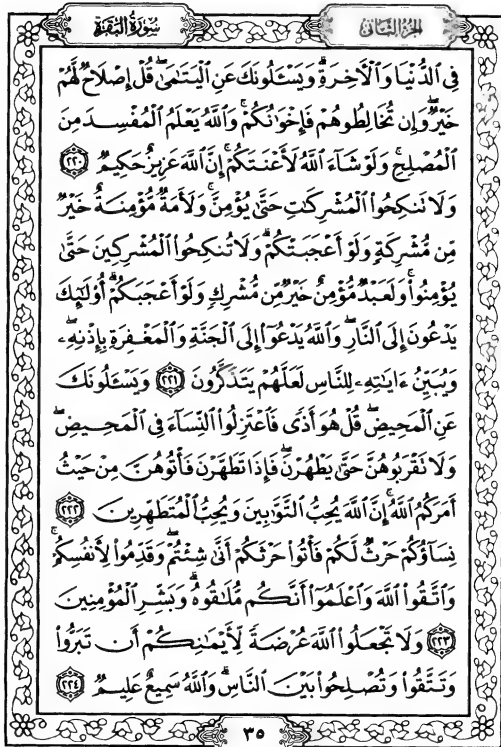 الجزء الثاني
سورة البقرة
فِى ٱلدُّنْيَا وَٱلْأَخِرَةِ ۗ وَيَسْـَٔلُونَكَ عَنِ ٱلْيَتَـٰمَىٰ ۖ قُلْ إِصْلَاحٌ لَّهُمْ
خَيْرٌ ۖ وَإِن تُخَالِطُوهُمْ فَإِخْوَٰنُكُمْ ۚ وَٱللَّهُ يَعْلَمُ ٱلْمُفْسِدَ مِنَ
ٱلْمُصْلِحِ ۚ وَلَوْ شَآءَ ٱللَّهُ لَأَعْنَتَكُمْ ۚ إِنَّ ٱللَّهَ عَزِيزٌ حَكِيمٌ ٢٢٠
وَلَا تَنكِحُوا۟ ٱلْمُشْرِكَـٰتِ حَتَّىٰ يُؤْمِنَّ ۚ وَلَأَمَةٌ مُّؤْمِنَةٌ خَيْرٌ
مِّن مُّشْرِكَةٍ وَلَوْ أَعْجَبَتْكُمْ ۗ وَلَا تُنكِحُوا۟ ٱلْمُشْرِكِينَ حَتَّىٰ
يُؤْمِنُوا۟ ۚ وَلَعَبْدٌ مُّؤْمِنٌ خَيْرٌ مِّن مُّشْرِكٍ وَلَوْ أَعْجَبَكُمْ ۗ أُو۟لَـٰٓئِكَ
يَدْعُونَ إِلَى ٱلنَّارِ ۖ وَٱللَّهُ يَدْعُوٓا۟ إِلَى ٱلْجَنَّةِ وَٱلْمَغْفِرَةِ بِإِذْنِهِۦ ۖ
وَيُبَيِّنُ ءَايَـٰتِهِۦ لِلنَّاسِ لَعَلَّهُمْ يَتَذَكَّرُونَ ٢٢١ وَيَسْـَٔلُونَكَ
عَنِ ٱلْمَحِيضِ ۖ قُلْ هُوَ أَذًى فَٱعْتَزِلُوا۟ ٱلنِّسَآءَ فِى ٱلْمَحِيضِ ۖ
وَلَا تَقْرَبُوهُنَّ حَتَّىٰ يَطْهُرْنَ ۖ فَإِذَا تَطَهَّرْنَ فَأْتُوهُنَّ مِنْ حَيْثُ
أَمَرَكُمُ ٱللَّهُ ۚ إِنَّ ٱللَّهَ يُحِبُّ ٱلتَّوَّٰبِينَ وَيُحِبُّ ٱلْمُتَطَهِّرِينَ ٢٢٢
نِسَآؤُكُمْ حَرْثٌ لَّكُمْ فَأْتُوا۟ حَرْثَكُمْ أَنَّىٰ شِئْتُمْ ۖ وَقَدِّمُوا۟ لِأَنفُسِكُمْ ۚ
وَٱتَّقُوا۟ ٱللَّهَ وَٱعْلَمُوٓا۟ أَنَّكُم مُّلَـٰقُوهُ ۗ وَبَشِّرِ ٱلْمُؤْمِنِينَ
٢٢٣ وَلَا تَجْعَلُوا۟ ٱللَّهَ عُرْضَةً لِّأَيْمَـٰنِكُمْ أَن تَبَرُّوا۟
وَتَتَّقُوا۟ وَتُصْلِحُوا۟ بَيْنَ ٱلنَّاسِ ۗ وَٱللَّهُ سَمِيعٌ عَلِيمٌ ٢٢٤
٣٥